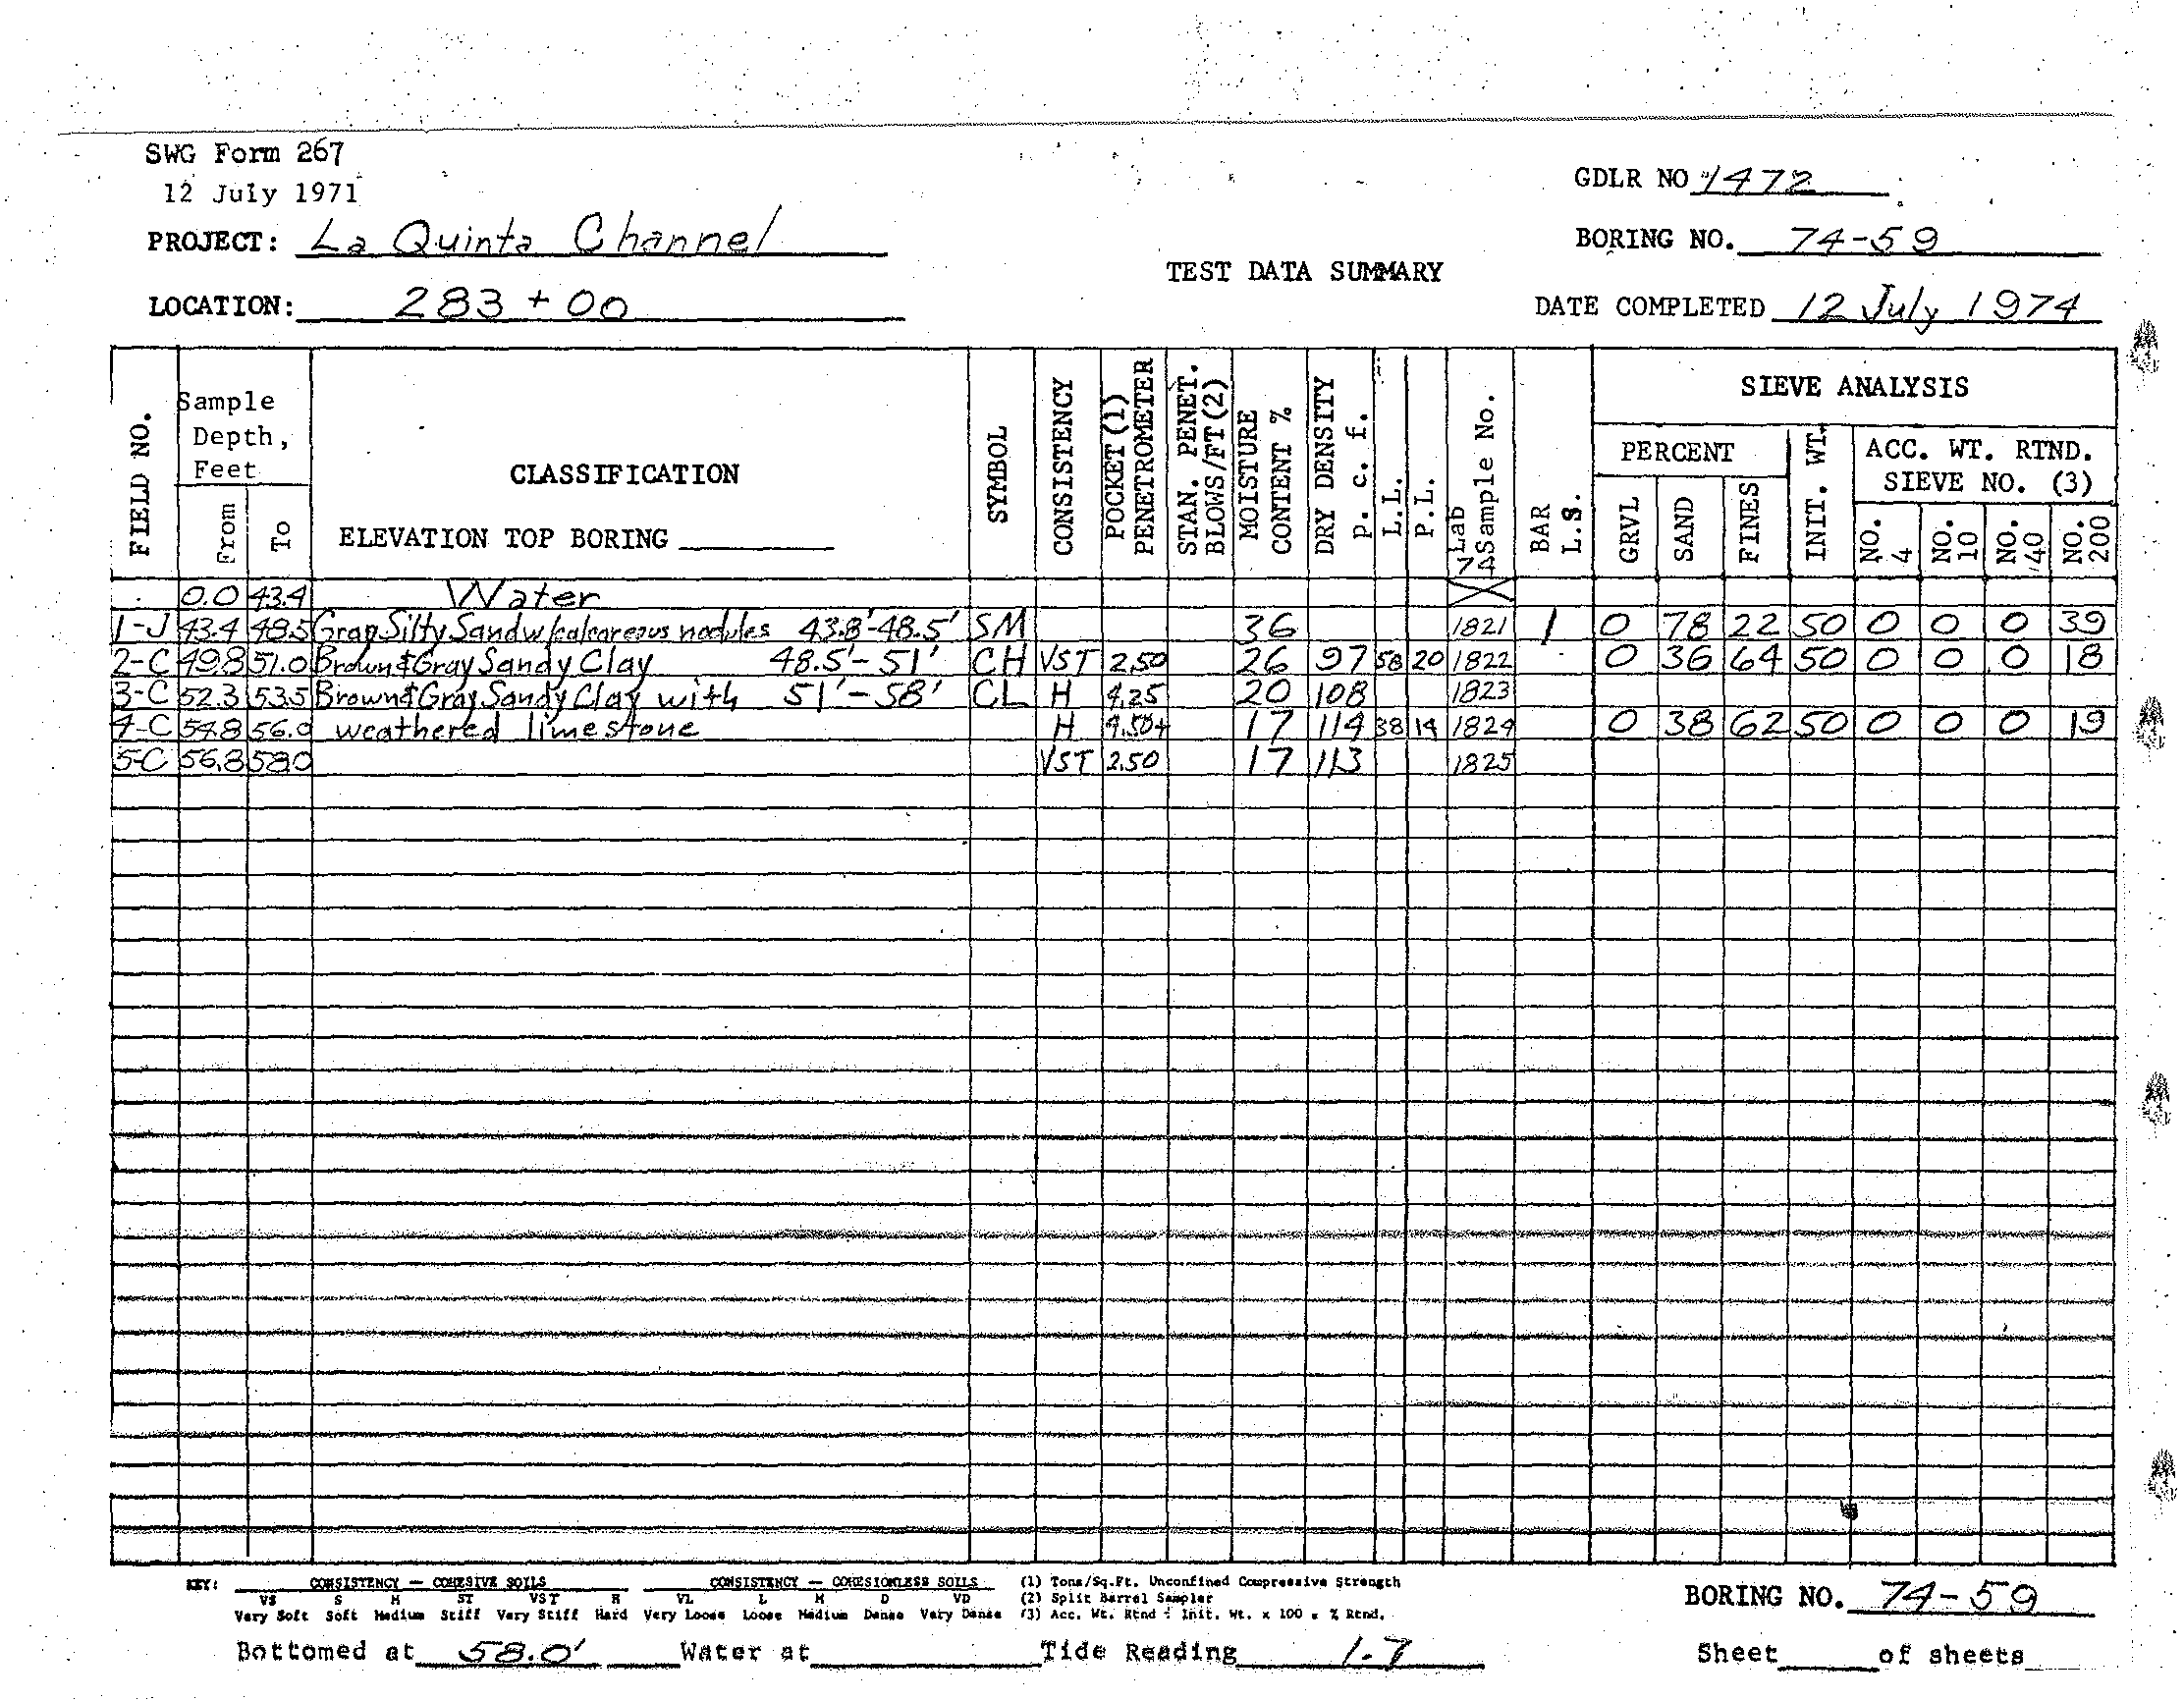 SWG Form 267
12 July 1971
GDLR NO 1472
PROJECT: La Quinta Channel
BORING NO. 74-59
TEST DATA SUMMARY
LOCATION: 283+00
DATE COMPLETED 12 July 1974
FIELD NO.
Sample Depth, Feet
From
To
CLASSIFICATION
ELEVATION TOP BORING
SYMBOL
CONSISTENCY
POCKET (1) PENETROMETER
STAN. PENET. BLOWS/FT (2)
MOISTURE CONTENT %
DRY DENSITY p. c. f.
L.L.
P.L.
Lab Sample No.
74
BAR L.S.
SIEVE ANALYSIS
PERCENT
GRVL
SAND
FINES
INIT. WT.
ACC. WT. RTND. SIEVE NO. (3)
NO. 4
NO. 10
NO. 40
NO. 200
0.0 43.4 Water
1-J 43.4 48.5 Gray Silty Sand w/calcareous nodules 43.8'-48.5' SM 36 1821 1 0 78 22 50 0 0 0 39
2-C 49.8 51.0 Brown & Gray Sandy Clay 48.5'-51' CH VST 2.50 26 97 58 20 1822 0 36 64 50 0 0 0 18
3-C 52.3 53.5 Brown & Gray Sandy Clay with 51'-58' CL H 4.25 20 108 1823
4-C 54.8 56.0 weathered limestone H 4.50+ 17 114 38 14 1824 0 38 62 50 0 0 0 19
5-C 56.8 58.0 VST 2.50 17 113 1825
KEY: CONSISTENCY — COHESIVE SOILS CONSISTENCY — COHESIONLESS SOILS (1) Tons/Sq.Ft. Unconfined Compressive Strength
VS S M ST VST H VL L M D VD (2) Split Barrel Sampler
Very Soft Soft Medium Stiff Very Stiff Hard Very Loose Loose Medium Dense Very Dense (3) Acc. Wt. Rtnd ÷ Init. Wt. x 100 = % Rtnd.
BORING NO. 74-59
Bottomed at 58.0' Water at Tide Reading 1.7 Sheet of sheets